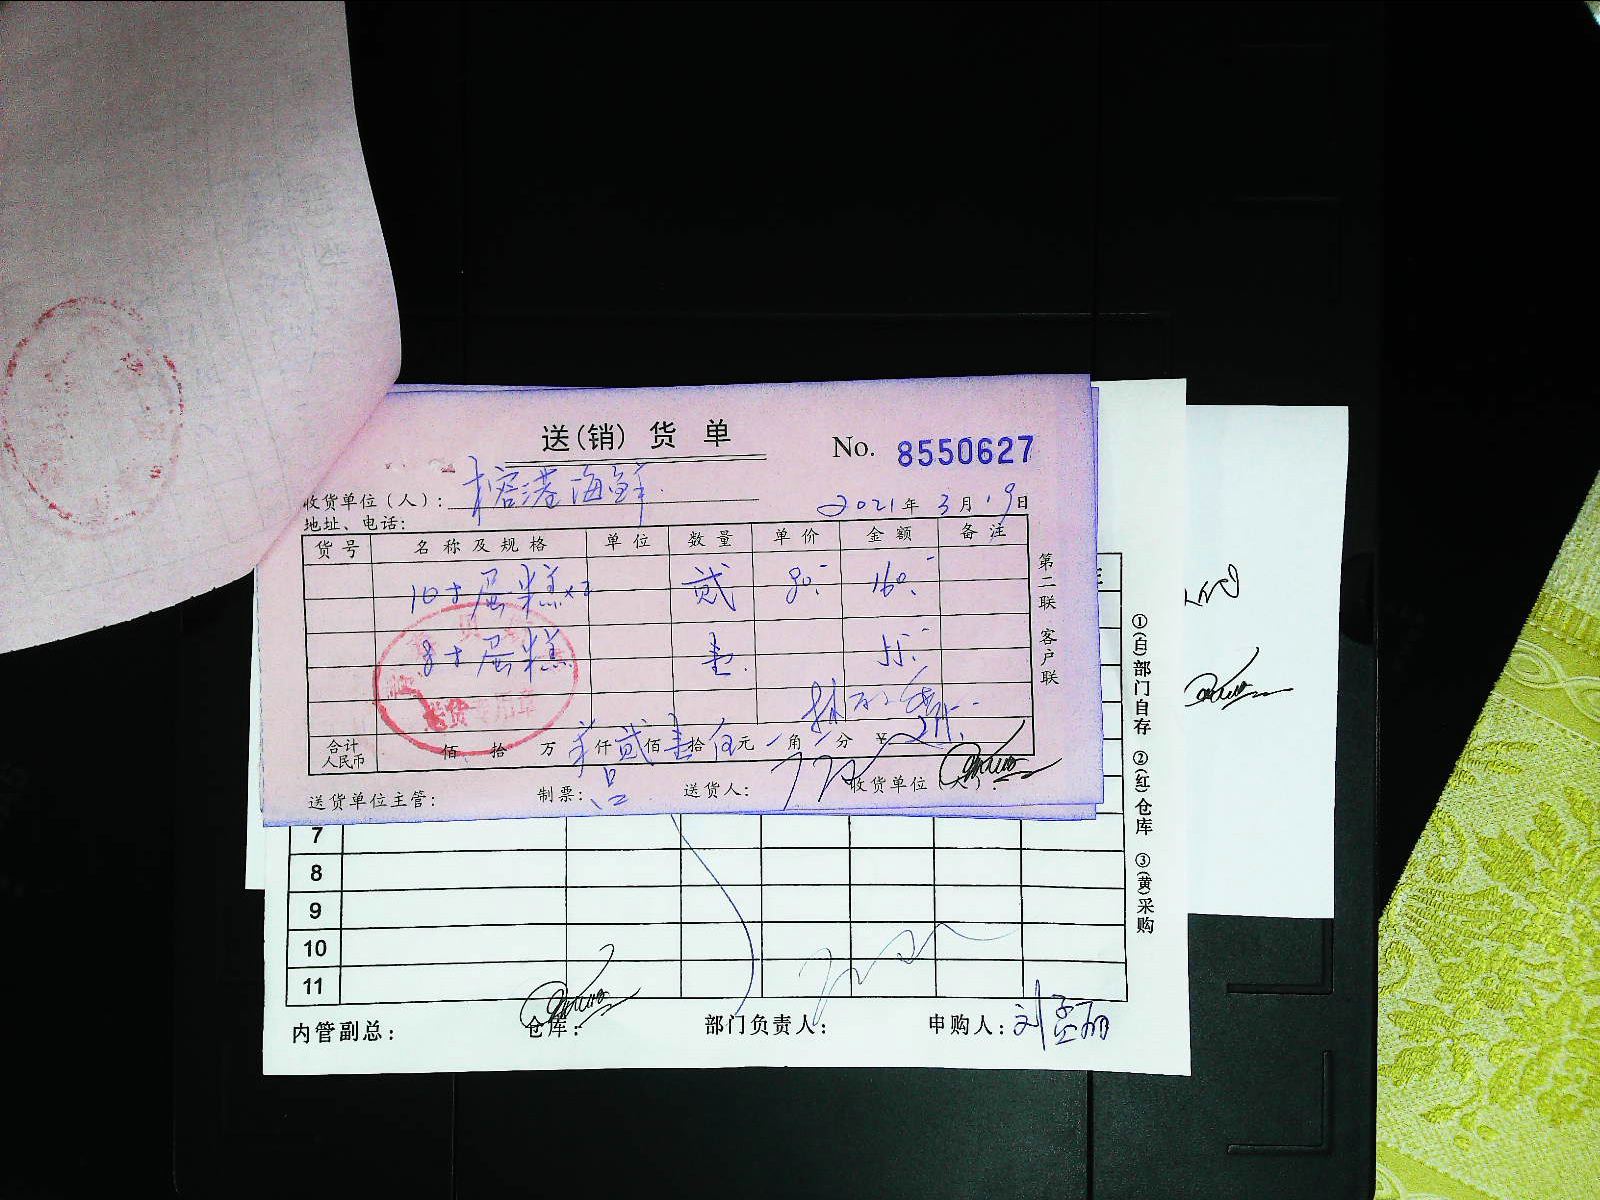 送(销)货单
No. 8550627
收货单位(人): 榕港海鲜
2021年3月19日
地址、电话:
货号 名称及规格 单位 数量 单价 金额 备注
10寸蛋糕×2 贰 80.- 160.-
8寸蛋糕 壹. 55.-
送货专用章
合计人民币 佰 拾 万 仟 贰佰 壹拾 伍元 角 分 ¥
送货单位主管: 制票: 吕 送货人: 收货单位(人):
第二联 客户联
7
8
9
10
11
内管副总: 仓库: 部门负责人: 申购人: 刘
①(白)部门自存 ②(红)仓库 ③(黄)采购